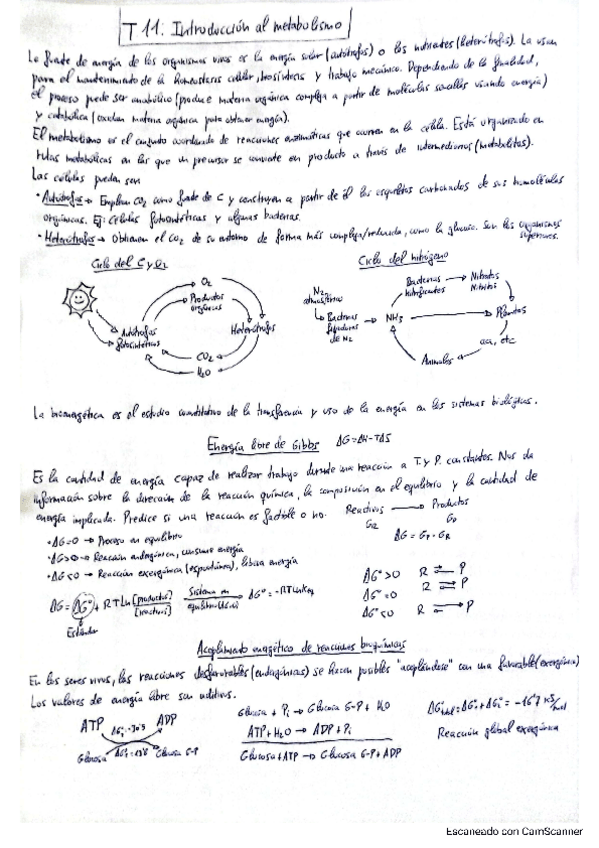 T 11: Introducción al metabolismo
La fuente de energía de los organismos vivos es la energía solar (autótrofos) o los nutrientes (heterótrofos). La usan
para el mantenimiento de la homeostasis celular, biosíntesis y trabajo mecánico. Dependiendo de la finalidad,
el proceso puede ser anabólico (produce materia orgánica compleja a partir de moléculas sencillas usando energía)
y catabólica (oxidan materia orgánica para obtener energía).
El metabolismo es el conjunto coordinado de reacciones enzimáticas que ocurren en la célula. Está organizado en
rutas metabólicas en las que un precursor se convierte en producto a través de intermediarios (metabolitos).
Las células pueden ser:
• Autótrofas → Emplean CO2 como fuente de C y construyen a partir de él los esqueletos carbonados de sus biomoléculas
orgánicas. Ej: Células fotosintéticas y algunas bacterias.
• Heterótrofas → Obtienen el CO2 de su entorno de forma más compleja/reducida, como la glucosa. Son los organismos
superiores.
Ciclo del C y O2
Ciclo del nitrógeno
O2
Productos
orgánicos
Autótrofos
fotosintéticos
Heterótrofos
CO2
H2O
N2
atmosférico
Bacterias
fijadoras
de N2
NH3
Bacterias
nitrificantes
Nitratos
Nitritos
Plantas
aa, etc
Animales
La bioenergética es el estudio cuantitativo de la transferencia y uso de la energía en los sistemas biológicos.
Energía libre de Gibbs ΔG=ΔH-TΔS
Es la cantidad de energía capaz de realizar trabajo durante una reacción a T. y P. constantes. Nos da
información sobre la dirección de la reacción química, la composición en el equilibrio y la cantidad de
energía implicada. Predice si una reacción es factible o no.
Reactivos → Productos
GR GP
ΔG = GP - GR
• ΔG=0 → Proceso en equilibrio
• ΔG>0 → Reacción endergónica, consume energía
• ΔG<0 → Reacción exergónica (espontánea), libera energía
ΔG = ΔG° + RTLn [productos]/[reactivos] Sistema en equilibrio ΔG° = -RTLnKeq
Estándar
ΔG°>0 R ⇌ P
ΔG°=0 R ⇌ P
ΔG°<0 R ⇌ P
Acoplamiento energético de reacciones bioquímicas
En los seres vivos, las reacciones desfavorables (endergónicas) se hacen posibles "acoplándose" con una favorable (exergónica)
Los valores de energía libre son aditivos.
ATP ADP
Glucosa Glucosa 6-P
Glucosa + Pi → Glucosa 6-P + H2O
ATP + H2O → ADP + Pi
Glucosa + ATP → Glucosa 6-P + ADP
= -16'7 kJ/mol
Reacción global exergónica
Escaneado con CamScanner